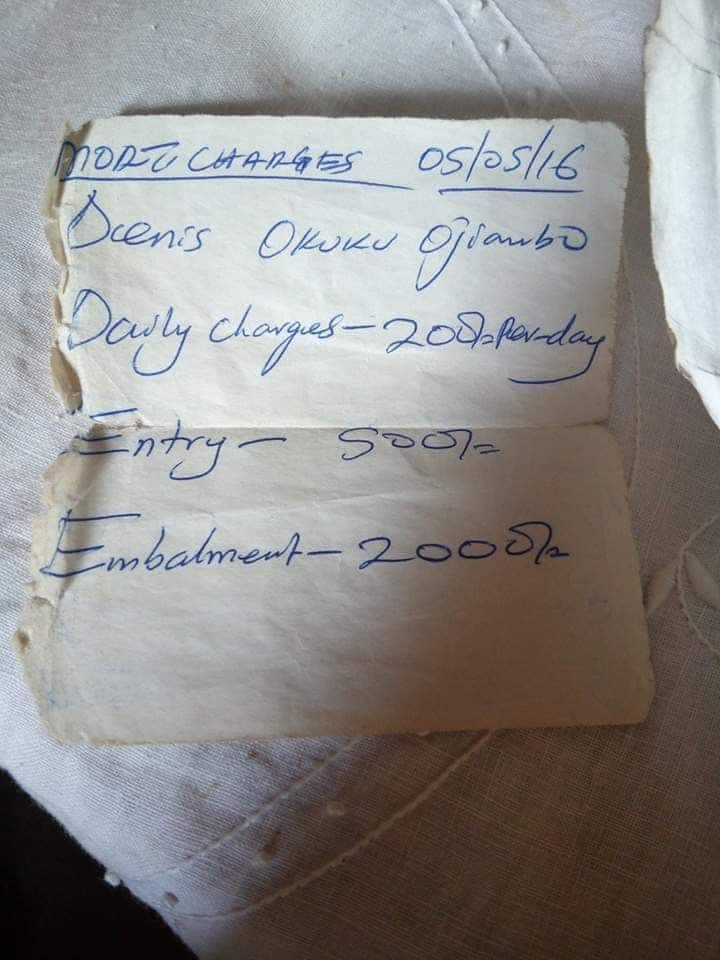 MORT. CHARGES 05/05/16
Deenis OKUKU Ojiambo
Daily charges – 200/= Per-day
Entry – 500/=
Embalment – 2000/=